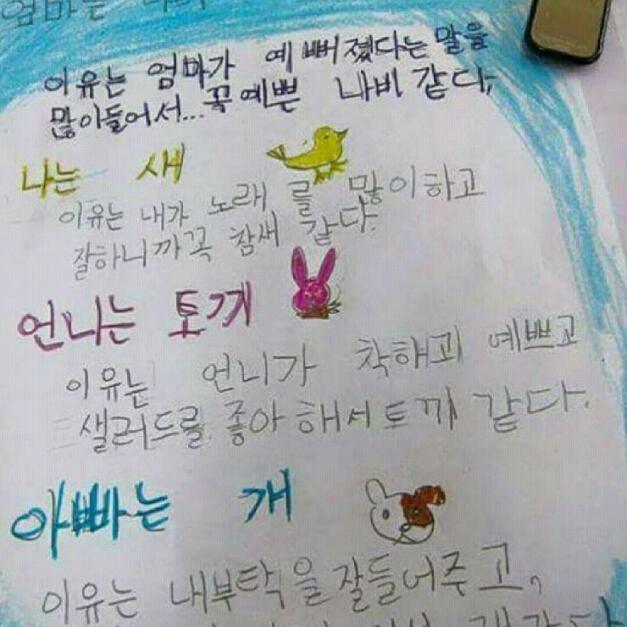 엄마는
이유는 엄마가 예뻐졌다는 말을
많이들어서...꼭예쁜 나비 같다,
나는 새
이유는 내가 노래를 많이하고
잘하니까꼭 참새 같다.
언니는 토끼
이유는 언니가 착하고 예쁘고
샐러드를 좋아해서토끼 같다.
아빠는 개
이유는 내부탁을잘들어주고,